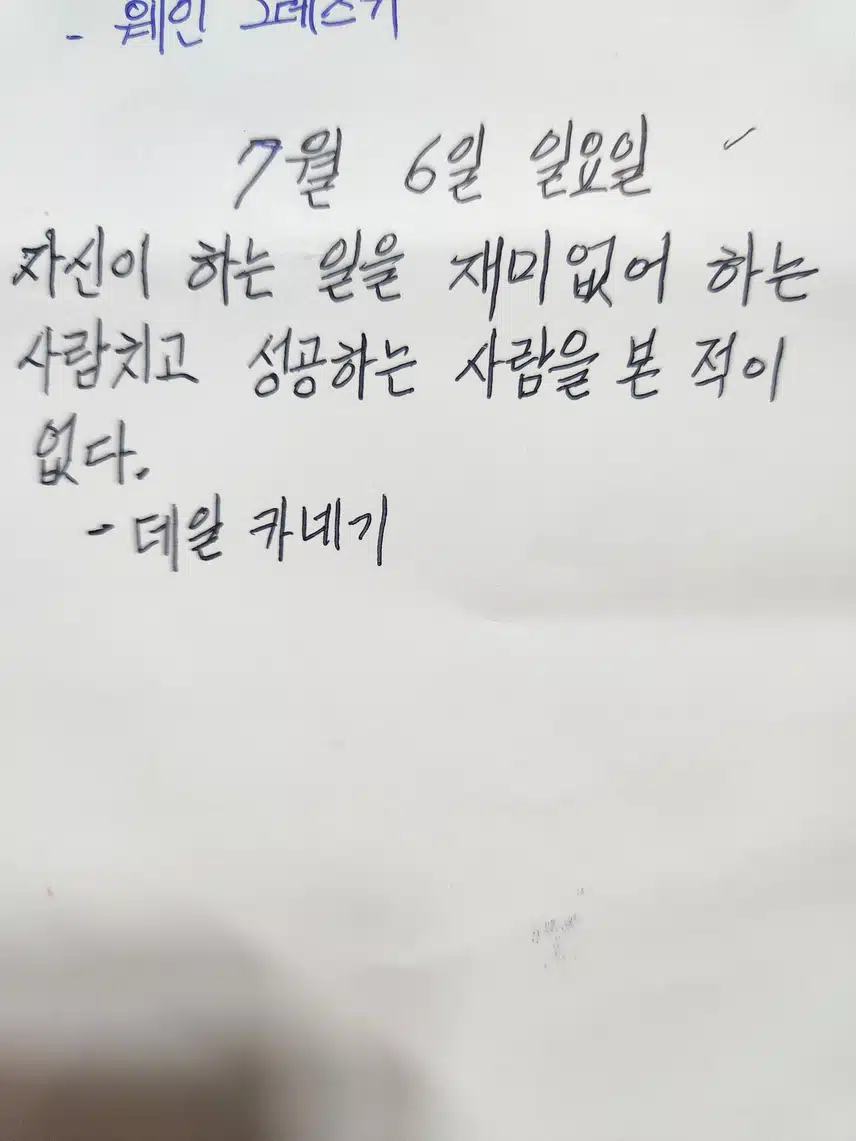 - 웨인 그레츠키
7월 6일 일요일
자신이 하는 일을 재미없어 하는
사람치고 성공하는 사람을 본 적이
없다.
- 데일 카네기